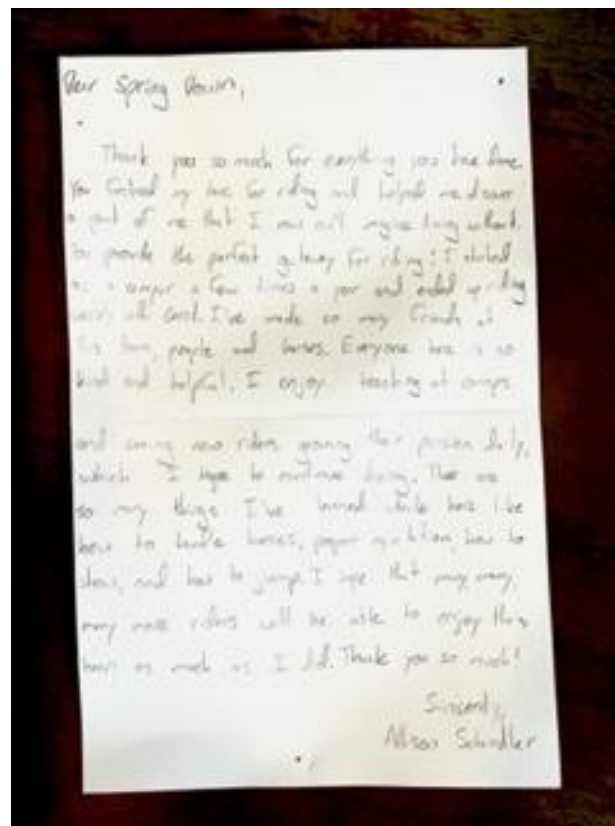 Dear Spring Down,
Thank you so much for everything you have done.
You my love for riding and helped me
a part of me that I can't imagine living without.
You provide the perfect gateway for riding; I started
as a camper a few times a year and ended up riding
I've made so many friends at
this barn, people and horses. Everyone here is so
kind and helpful. I enjoy teaching at camps
and seeing new riders their passion daily,
which I hope to continue doing. There are
so many things I've learned while here like
how to handle horses, proper how to
show, and how to jump. I hope that many, many,
many more riders will be able to enjoy this
barn as much as I did. Thank you so much!
Sincerely,
Allison Schindler